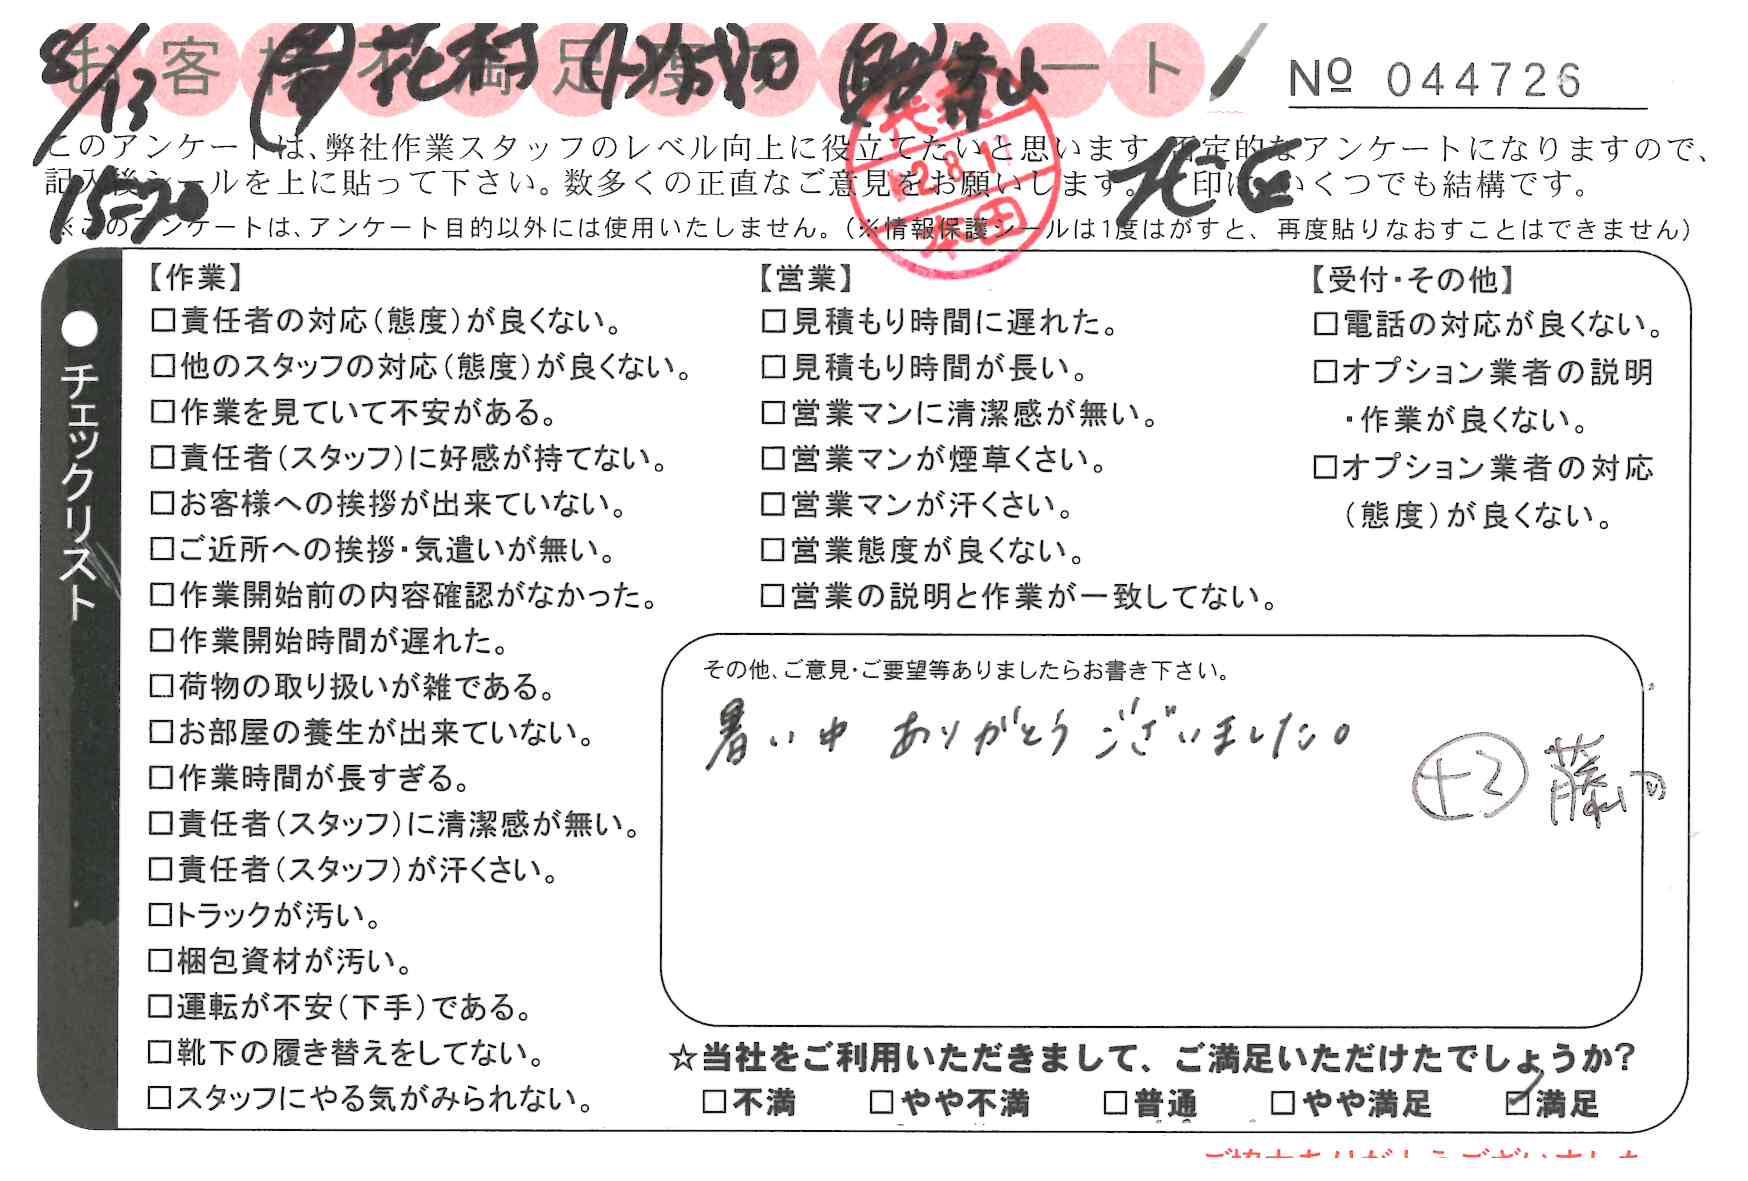 お客様不満足度アンケート
№ 044726
8/13
15-20
北区
このアンケートは、弊社作業スタッフのレベル向上に役立てたいと思います。否定的なアンケートになりますので、
記入後シールを上に貼って下さい。数多くの正直なご意見をお願いします。　印は、いくつでも結構です。
※このアンケートは、アンケート目的以外には使用いたしません。（※情報保護シールは1度はがすと、再度貼りなおすことはできません）
●チェックリスト
【作業】
□責任者の対応（態度）が良くない。
□他のスタッフの対応（態度）が良くない。
□作業を見ていて不安がある。
□責任者（スタッフ）に好感が持てない。
□お客様への挨拶が出来ていない。
□ご近所への挨拶・気遣いが無い。
□作業開始前の内容確認がなかった。
□作業開始時間が遅れた。
□荷物の取り扱いが雑である。
□お部屋の養生が出来ていない。
□作業時間が長すぎる。
□責任者（スタッフ）に清潔感が無い。
□責任者（スタッフ）が汗くさい。
□トラックが汚い。
□梱包資材が汚い。
□運転が不安（下手）である。
□靴下の履き替えをしてない。
□スタッフにやる気がみられない。
【営業】
□見積もり時間に遅れた。
□見積もり時間が長い。
□営業マンに清潔感が無い。
□営業マンが煙草くさい。
□営業マンが汗くさい。
□営業態度が良くない。
□営業の説明と作業が一致してない。
【受付・その他】
□電話の対応が良くない。
□オプション業者の説明
・作業が良くない。
□オプション業者の対応
（態度）が良くない。
その他、ご意見・ご要望等ありましたらお書き下さい。
暑い中 ありがとうございました。
+2
☆当社をご利用いただきまして、ご満足いただけたでしょうか?
□不満 □やや不満 □普通 □やや満足 ☑満足
ご協力ありがとうございました